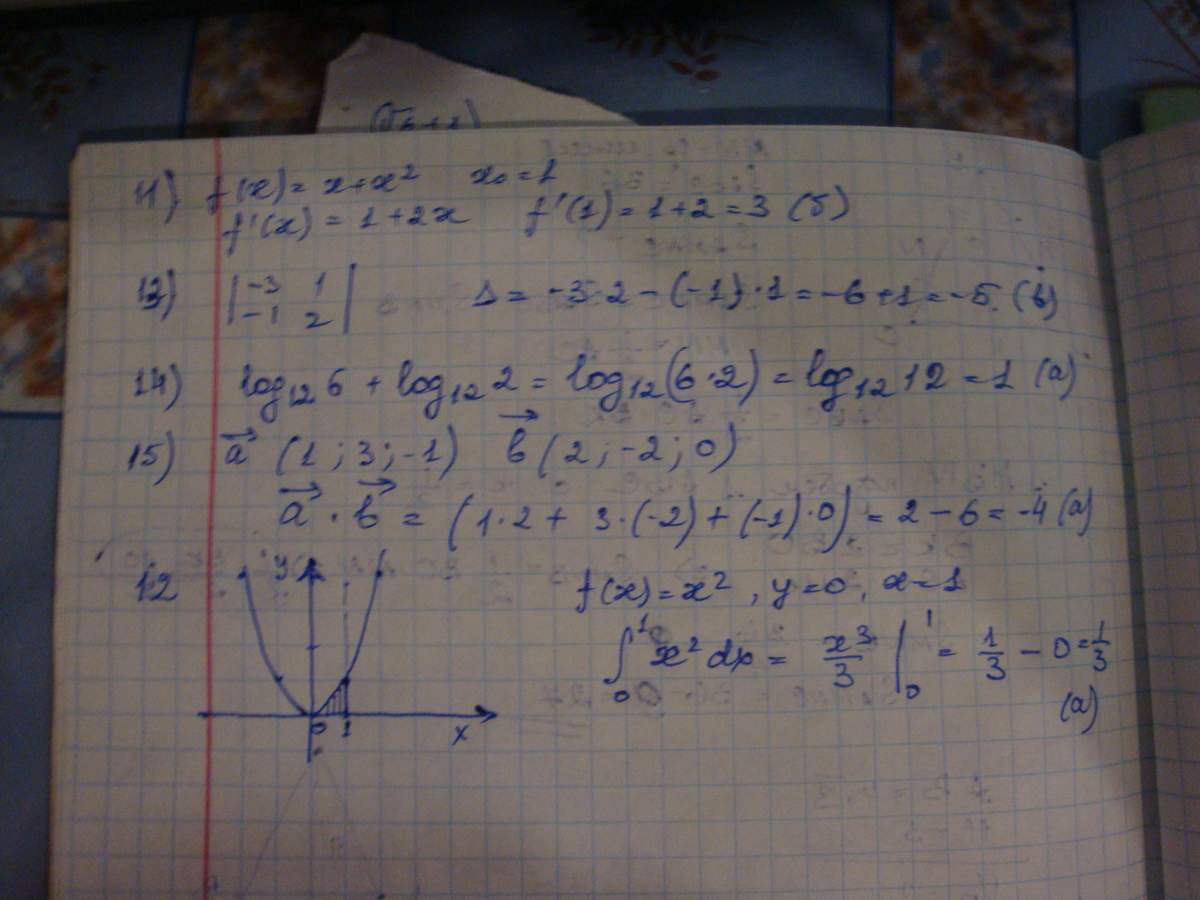 11) f(x) = x+x² x₀=1
f'(x) = 1+2x f'(1) = 1+2 = 3 (б)
13) |-3 1| Δ = -3·2 - (-1)·1 = -6+1 = -5. (в)
|-1 2|
14) log₁₂6 + log₁₂2 = log₁₂(6·2) = log₁₂12 = 1 (а)
15) a⃗ (1; 3; -1) b⃗ (2; -2; 0)
a⃗ · b⃗ = (1·2 + 3·(-2) + (-1)·0) = 2 - 6 = -4 (а)
12 y f(x) = x², y=0, x=1
∫₀¹ x² dx = x³/3 |₀¹ = 1/3 - 0 = 1/3
0 1 x (а)